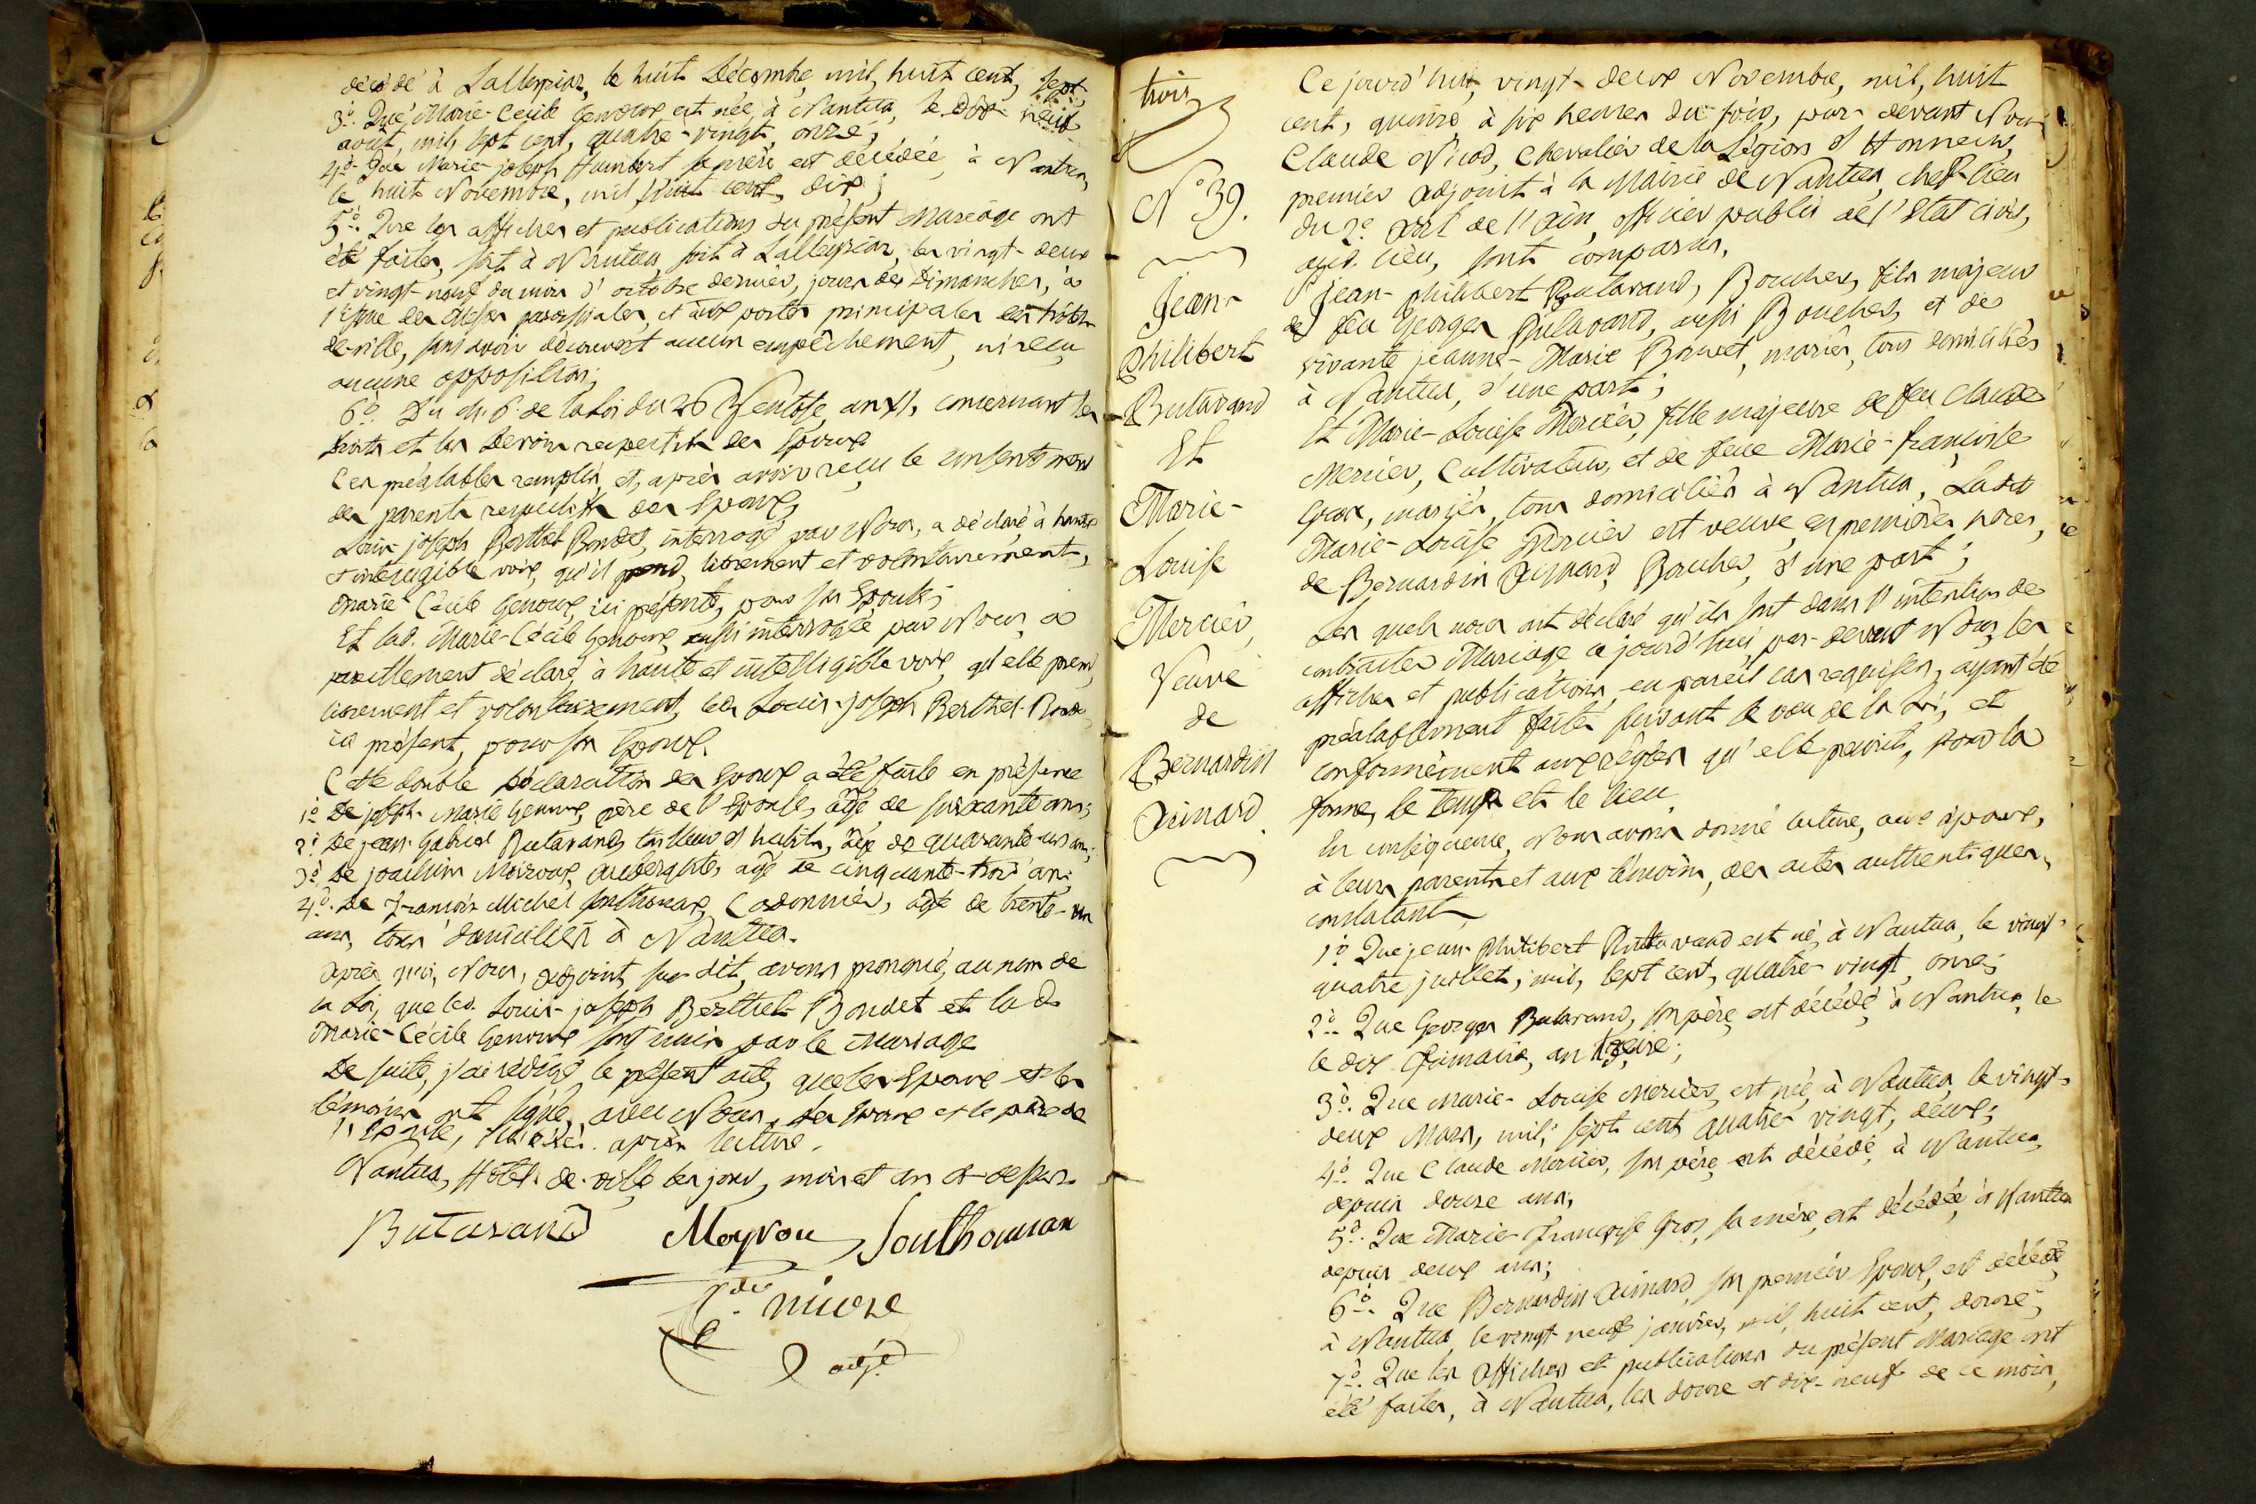 décédé à Lalleyriat, le huit Décembre, mil, huit cent, sept;
3º. Que Marie-Cécile Genoux est née, à Nantua, le dix-neuf
août, mil, sept cent, quatre-vingt, onze;
4º. Que Marie-joseph Humbert sa mère est décédée, à Nantua,
le huit Novembre, mil, huit cent, dix;
5º. Que les affiches et publications du présent Mariage ont
été faites, soit à Nantua, soit à Lalleyriat, les vingt-deux
et vingt-neuf du mois d'octobre dernier, jours des Dimanches, à
l'issue des messes paroissiales, et aux portes principales des hôtels
de-ville, sans avoir découvert aucun empêchement, ni reçu
aucune opposition;
6º. Du ch. 6 de la Loi du 26 Ventose, an XI, concernant les
droits et les devoirs respectifs des Epoux
Ces préalables remplis, et, après avoir reçu le consentement
des parents respectifs des Epoux,
Louis-joseph Berthet-Bondet, interrogé par Nous, a déclaré à haute
et intelligible voix, qu'il prend, librement et volontairement,
Marie-Cécile Genoux, ici présente, pour son Epouse;
Et lad. Marie-Cécile Genoux, aussi interrogée par Nous, a
pareillement déclaré, à haute et intelligible voix, qu'elle prend,
librement et volontairement, led. Louis-joseph Berthet-Bondet
ici présent, pour son Epoux.
Cette double déclaration des Epoux a été faite en présence
1º De joseph-Marie Genoux, père de l'Epouse, âgé de soixante ans;
2º De jean-Gabriel Butavand, tailleur d'habits, âgé de quarante-un ans;
3º De joachim Moyroux, aubergiste, âgé de cinquante-trois ans;
4º. De François Michel Southonnax, Cordonnier, âgé de trente-un
ans, tous domiciliés à Nantua.
Après quoi, Nous, adjoint, sus-dit, avons prononcé, au nom de
la Loi, que led. Louis-joseph Berthet-Bondet et lad.
Marie-Cécile Genoux sont unis par le Mariage
De suite, j'ai rédigé le présent acte, que les Epoux et les
témoins ont signé, avec Nous, les Epoux et le père de
l'Epouse, après lecture.
Nantua, Hôtel-de-ville, les jour, mois et an ci-dessus.
Butavand Moyrou Southonnax
Cde nicod
adj.
trois
Nº 39.
Jean-
Philibert
Butavand
Et
Marie-
Louise
Mercier,
Veuve
de
Bernardin
Aimard.
Ce jourd'hui, vingt-deux Novembre, mil, huit
cent, quinze à six heures du soir, par-devant Nous
Claude Nicod, Chevalier de la Légion d'Honneur,
premier adjoint à la Mairie de Nantua, chef-lieu
du 2e. arrt. de l'Ain, officier public de l'Etat civil,
aud. lieu, sont comparus,
Jean-philibert Butavand, Boucher, fils majeur
de feu Georges Butavand, aussi Boucher, et de
vivante jeanne-Marie Bonnet, mariés, tous domiciliés
à Nantua, d'une part;
Et Marie-Louise Mercier, fille majeure de feu Claude
Mercier, Cultivateur, et de feue Marie-françoise
Gros, mariés, tous domiciliés à Nantua, Ladite
Marie-Louise Mercier est veuve, en premières noces,
de Bernardin Aimard, Boucher, d'une part;
Les quels nous ont déclaré qu'ils sont dans l'intention de
contracter Mariage ce jourd'hui, par-devant Nous, les
affiches et publications, en pareil cas requises, ayant été
préalablement faites suivant le vœu de la Loi, et
conformément aux règles qu'elle prescrit, pour la
forme, le temps et le lieu.
En conséquence, Nous avons donné lecture, aux époux,
à leurs parents et aux témoins, des actes authentiques,
constatant,
1º. Que jean-Philibert Buttavand est né, à Nantua, le vingt-
quatre juillet, mil, sept cent, quatre-vingt, onze;
2º. Que Georges Butavand, son père, est décédé, à Nantua, le
le dix frimaire, an treize;
3º. Que Marie-Louise Mercier, est née, à Nantua, le vingt-
deux Mars, mil, sept cent quatre-vingt, deux;
4º. Que Claude Mercier, son père, est décédé, à Nantua,
depuis douze ans;
5º. Que Marie-Françoise Gros, sa mère, est décédée, à Nantua
depuis deux ans;
6º. Que Bernardin Aimard, son premier Epoux, est décédé,
à Nantua, le vingt-neuf janvier, mil, huit cent, douze;
7º. Que les affiches et publications du présent Mariage ont
été faites, à Nantua, les douze et dix-neuf de ce mois,